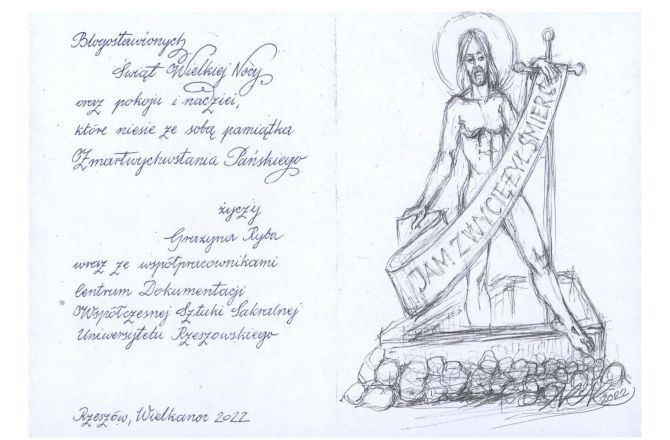 Błogosławionych
Świąt Wielkiej Nocy
oraz pokoju i nadziei,
które niesie ze sobą pamiątka
Zmartwychwstania Pańskiego
życzy
Grażyna Ryba
wraz ze współpracownikami
Centrum Dokumentacji
Współczesnej Sztuki Sakralnej
Uniwersytetu Rzeszowskiego
Rzeszów, Wielkanoc 2022
JAM ZWYCIĘŻYŁ ŚMIERĆ
2022